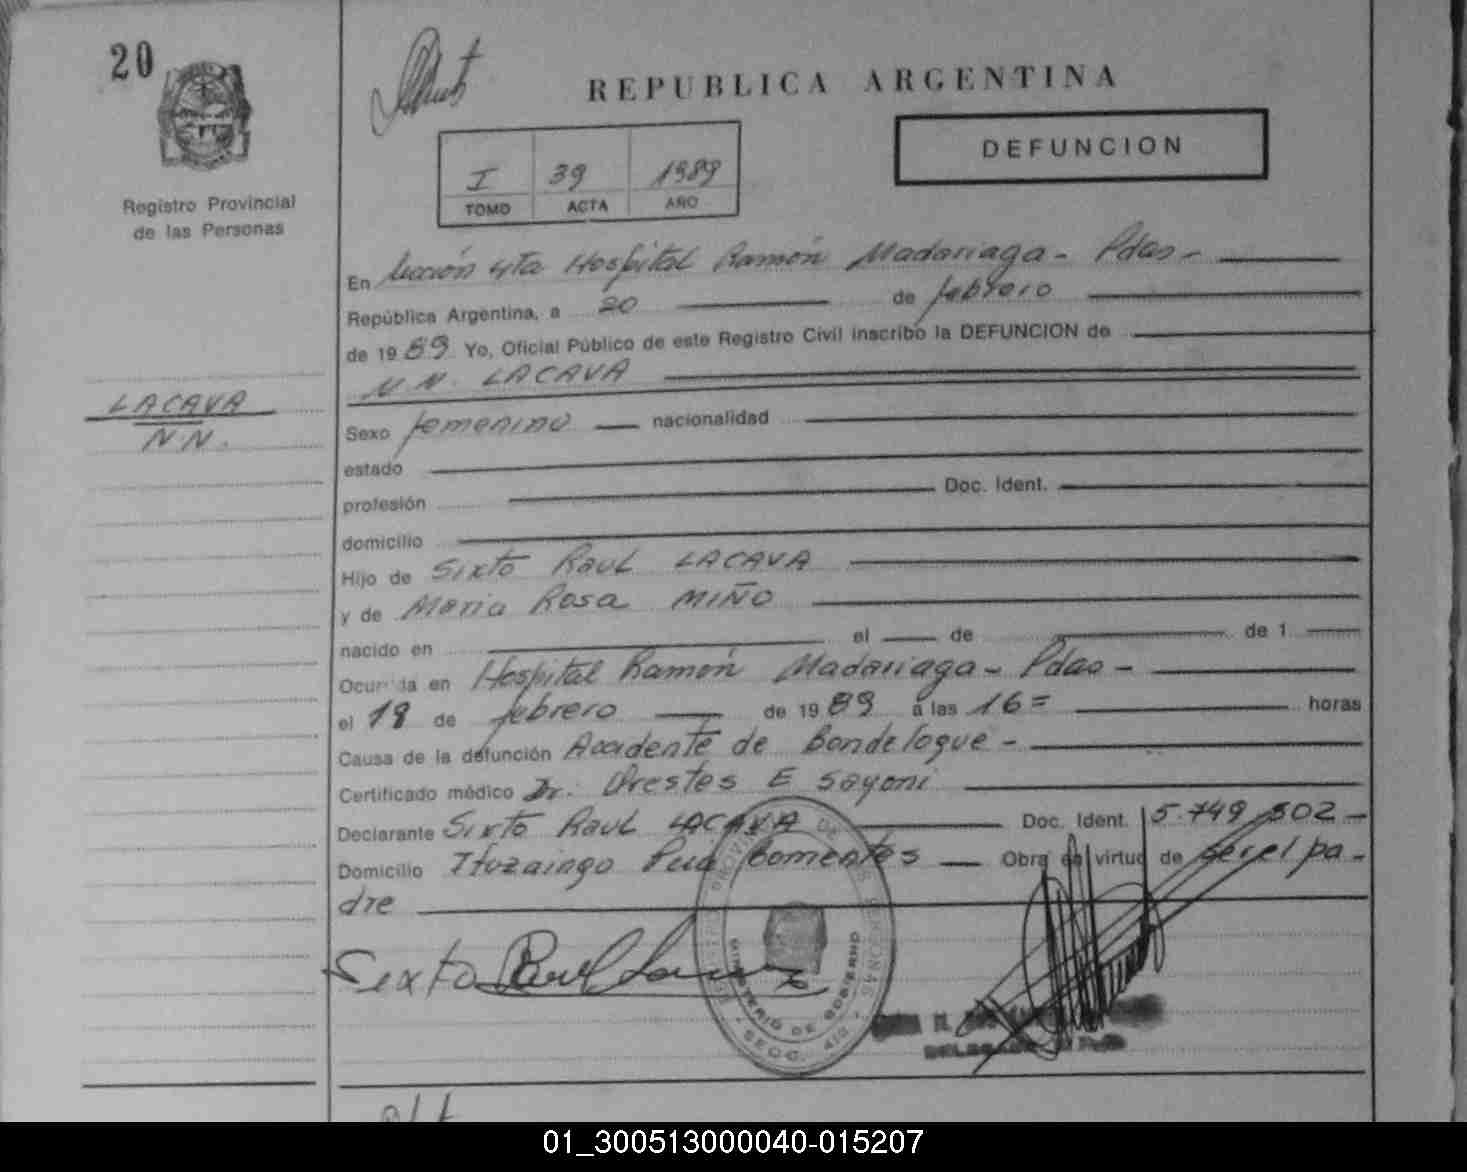 20
REPUBLICA ARGENTINA
DEFUNCION
I 39 1989
TOMO ACTA AÑO
Registro Provincial
de las Personas
En Sección 4ta Hospital Ramón Madariaga - Pdas -
República Argentina, a 20 de febrero
de 1989 Yo, Oficial Público de este Registro Civil inscribo la DEFUNCION de
N.N. LACAVA
LACAVA
N.N.
Sexo femenino nacionalidad
estado
profesión Doc. Ident.
domicilio
Hijo de Sixto Raul LACAVA
y de Maria Rosa MIÑO
nacido en el de de 1
Ocurrida en Hospital Ramón Madariaga - Pdas -
el 19 de febrero de 1989 a las 16= horas
Causa de la defunción Accidente de
Certificado médico Dr. Orestes E
Declarante Sixto Raul LACAVA Doc. Ident. 5.749.502-
Domicilio Ituzaingo Obra en virtud de ser el pa-
dre
Sexto Raul
MINISTERIO DE GOBIERNO
01_300513000040-015207